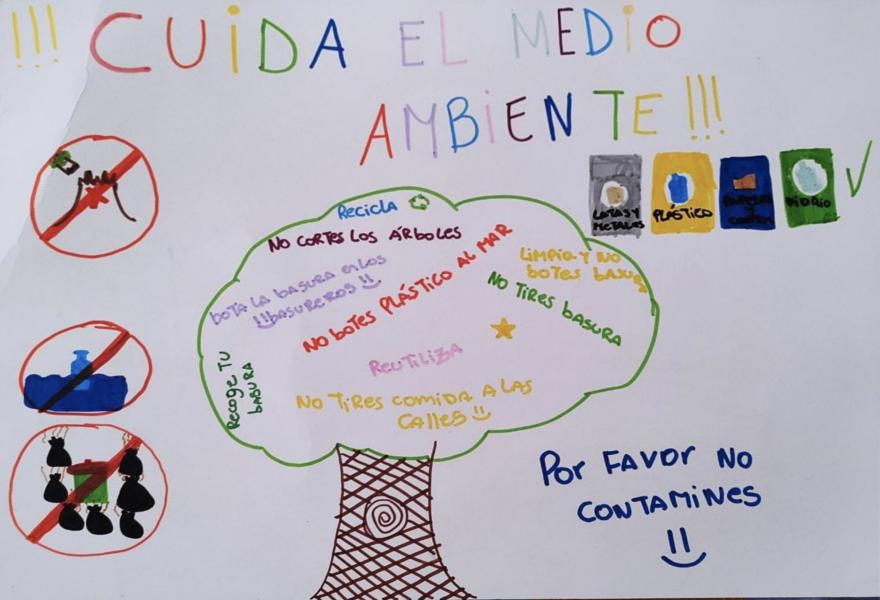 !!! CUIDA EL MEDIO
AMBIENTE !!!
LATAS Y
METALES
PLÁSTICO
PAPELES
Y
CARTÓN
VIDRIO
RECICLA
NO CORTES LOS ÁRBOLES
BOTA LA BASURA EN LOS
¡¡BASUREROS!!
NO BOTES PLÁSTICO AL MAR
LIMPIA Y NO
BOTES BASURA
NO TIRES BASURA
RECOGE TU
BASURA
REUTILIZA
NO TIRES COMIDA A LAS
CALLES
POR FAVOR NO
CONTAMINES